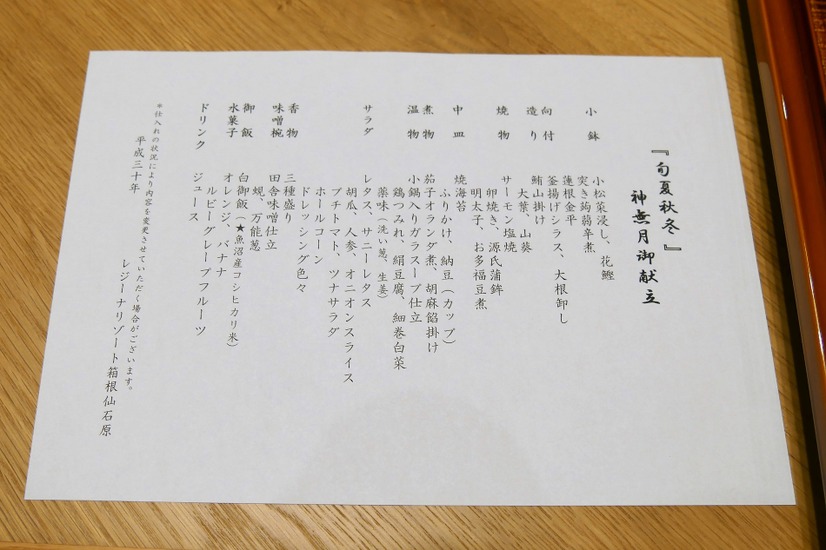 『旬夏秋冬』
神無月御献立
小鉢 小松菜浸し、花鰹
突き蒟蒻辛煮
蓮根金平
向付 釜揚げシラス、大根卸し
造り 鮪山掛け
大葉、山葵
焼物 サーモン塩焼
卵焼き、源氏蒲鉾
明太子、お多福豆煮
中皿 焼海苔
ふりかけ、納豆(カップ)
煮物 茄子オランダ煮、胡麻餡掛け
温物 小鍋入りガラスープ仕立
鶏つみれ、絹豆腐、細巻白菜
薬味(洗い葱、生姜)
サラダ レタス、サニーレタス
胡瓜、人参、オニオンスライス
プチトマト、ツナサラダ
ホールコーン
ドレッシング色々
香物 三種盛り
味噌椀 田舎味噌仕立
蜆、万能葱
御飯 白御飯(★魚沼産コシヒカリ米)
水菓子 オレンジ、バナナ
ルビーグレープフルーツ
ドリンク ジュース
*仕入れの状況により内容を変更させていただく場合がございます。
平成三十年
レジーナリゾート箱根仙石原